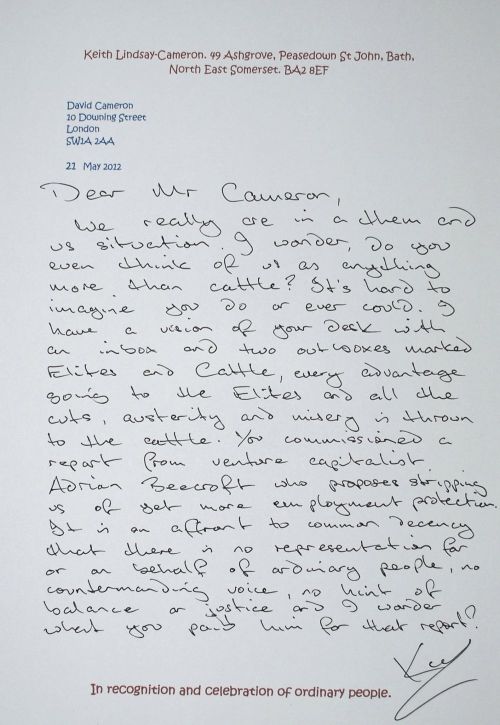 Keith Lindsay-Cameron. 49 Ashgrove, Peasedown St John, Bath,
North East Somerset. BA2 8EF
David Cameron
10 Downing Street
London
SW1A 2AA
21 May 2012
Dear Mr Cameron,
We really are in a them and
us situation. I wonder, do you
even think of us as anything
more than cattle? It's hard to
imagine you do or ever could. I
have a vision of your desk with
an inbox and two outboxes marked
Elites and Cattle, every advantage
going to the Elites and all the
cuts, austerity and misery is thrown
to the cattle. You commissioned a
report from venture capitalist
Adrian Beecroft who proposes stripping
us of yet more employment protection.
It is an affront to common decency
that there is no representation for
or on behalf of ordinary people, no
countermanding voice, no hint of
balance or justice and I wonder
what you paid him for that report?
In recognition and celebration of ordinary people.